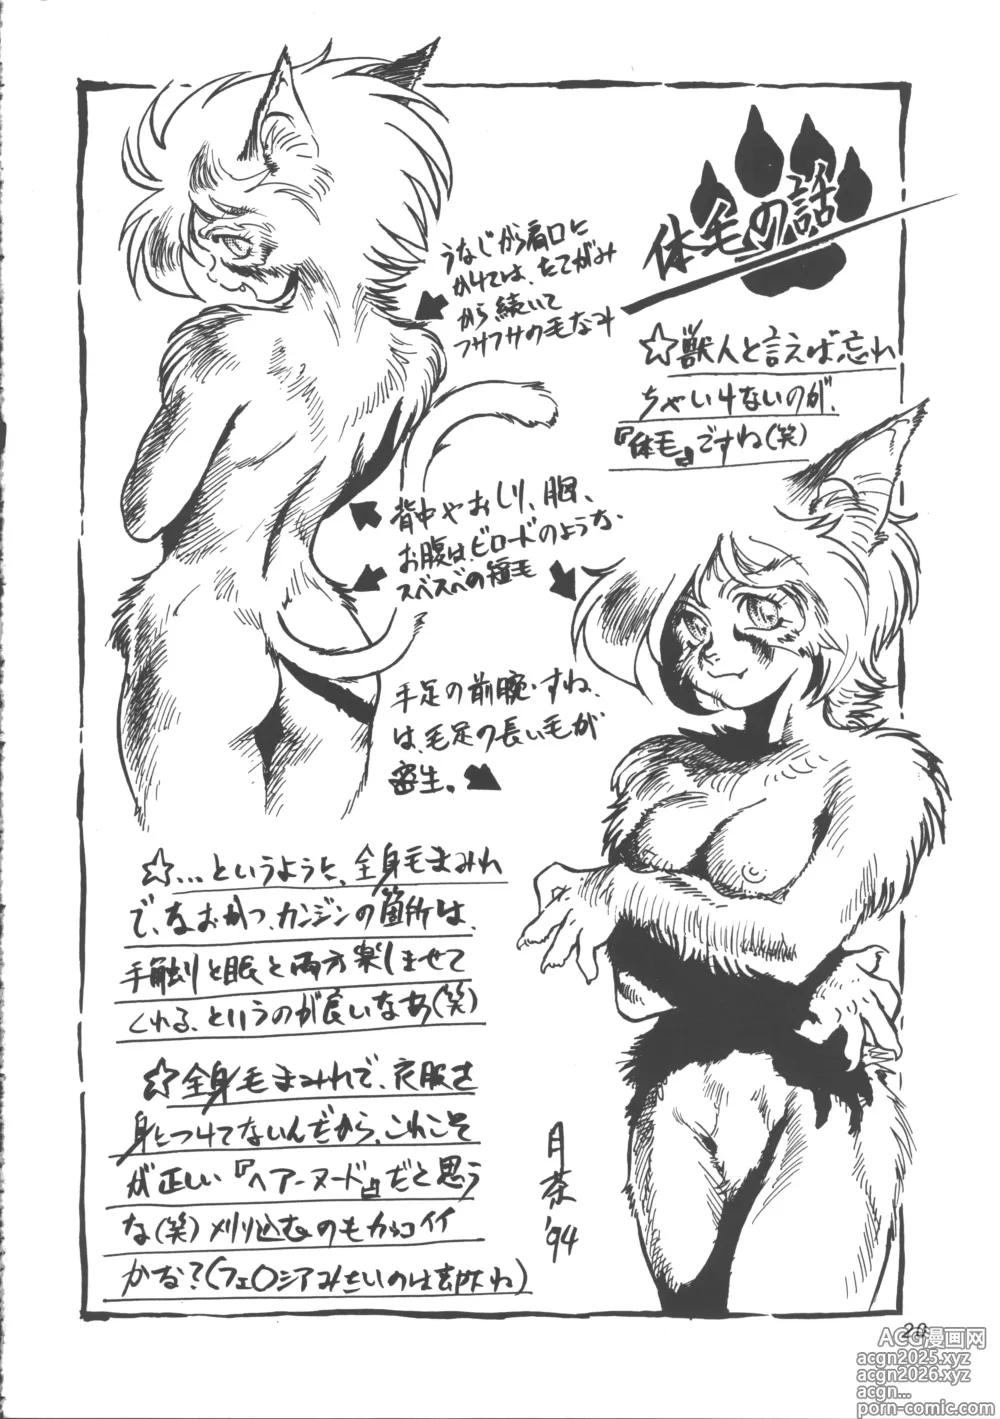 体毛の話
☆獣人と言えば忘れ
ちゃいけないのが、
『体毛』ですね(笑)
うなじから肩口に
かけては、たてがみ
から続いて
フサフサの毛なみ
背中やおしり、胸、
お腹は、ビロードのような、
スベスベの短毛
手足の前腕・すね、
は、毛足の長い毛が
密生。
☆…というように、全身毛まみれ
で、なおかつ、カンジンの箇所は、
手触りと眼と両方楽しませて
くれる、というのが良いなあ(笑)
☆全身毛まみれで、衣服を
身につけてないんだから、これこそ
が正しい『ヘアーヌード』だと思う
な(笑)刈り込むのもカッコイイ
かな?(フェ〇シアみたいのは
ね)
月茶
'94
20
ACG漫画网
acgn2025.xyz
acgn2026.xyz
acgn...
porn-comic.com